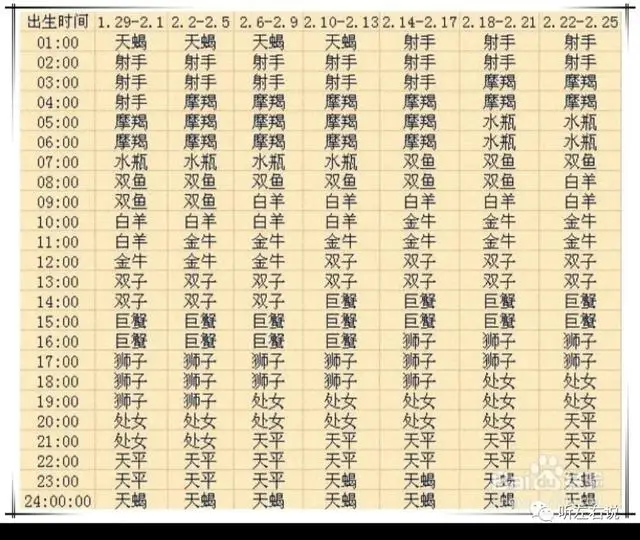 出生时间 1.29-2.1 2.2-2.5 2.6-2.9 2.10-2.13 2.14-2.17 2.18-2.21 2.22-2.25
01:00 天蝎 天蝎 天蝎 天蝎 射手 射手 射手
02:00 射手 射手 射手 射手 射手 射手 射手
03:00 射手 射手 射手 射手 射手 摩羯 摩羯
04:00 射手 摩羯 摩羯 摩羯 摩羯 摩羯 摩羯
05:00 摩羯 摩羯 摩羯 摩羯 摩羯 水瓶 水瓶
06:00 摩羯 摩羯 摩羯 摩羯 摩羯 水瓶 水瓶
07:00 水瓶 水瓶 水瓶 水瓶 双鱼 双鱼 双鱼
08:00 双鱼 双鱼 双鱼 双鱼 双鱼 双鱼 白羊
09:00 双鱼 双鱼 白羊 白羊 白羊 白羊 白羊
10:00 白羊 白羊 白羊 白羊 金牛 金牛 金牛
11:00 白羊 金牛 金牛 金牛 金牛 金牛 金牛
12:00 金牛 金牛 金牛 双子 双子 双子 双子
13:00 双子 双子 双子 双子 双子 双子 双子
14:00 双子 双子 双子 巨蟹 巨蟹 巨蟹 巨蟹
15:00 巨蟹 巨蟹 巨蟹 巨蟹 巨蟹 巨蟹 巨蟹
16:00 巨蟹 巨蟹 巨蟹 巨蟹 狮子 狮子 狮子
17:00 狮子 狮子 狮子 狮子 狮子 狮子 狮子
18:00 狮子 狮子 狮子 狮子 狮子 处女 处女
19:00 狮子 狮子 处女 处女 处女 处女 处女
20:00 处女 处女 处女 处女 处女 处女 天平
21:00 处女 处女 天平 天平 天平 天平 天平
22:00 天平 天平 天平 天平 天平 天平 天平
23:00 天平 天平 天平 天蝎 天蝎 天蝎 天蝎
24:00:00 天蝎 天蝎 天蝎 天蝎 天蝎 天蝎 天蝎
听左右说